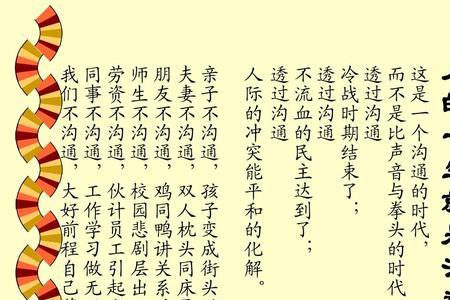 这是一个沟通的时代，
而不是比声音与拳头的时代
透过沟通
冷战时期结束了；
透过沟通
不流血的民主达到了；
透过沟通
人际的冲突能平和的化解。
亲子不沟通，孩子变成街头
夫妻不沟通，双人枕头同床
朋友不沟通，鸡同鸭讲关系
师生不沟通，校园悲剧层出
劳资不沟通，伙计员工引起
同事不沟通，工作学习做无
我们不沟通，大好前程自己